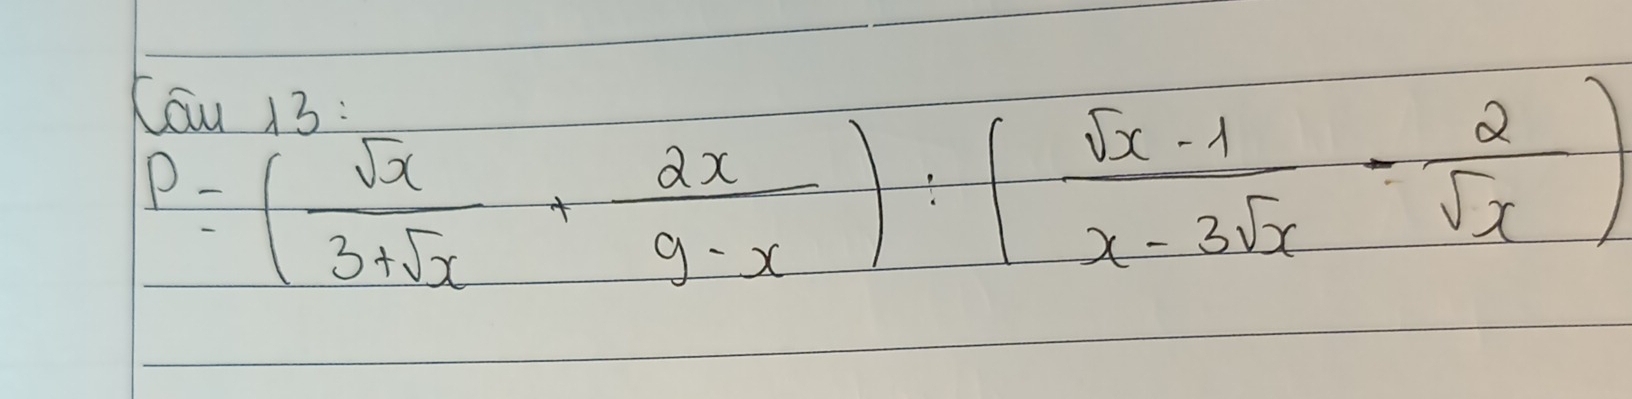 Câu 13:
P = ( √x / (3+√x) + 2x / (9-x) ) : ( (√x - 1) / (x - 3√x) - 2 / √x )